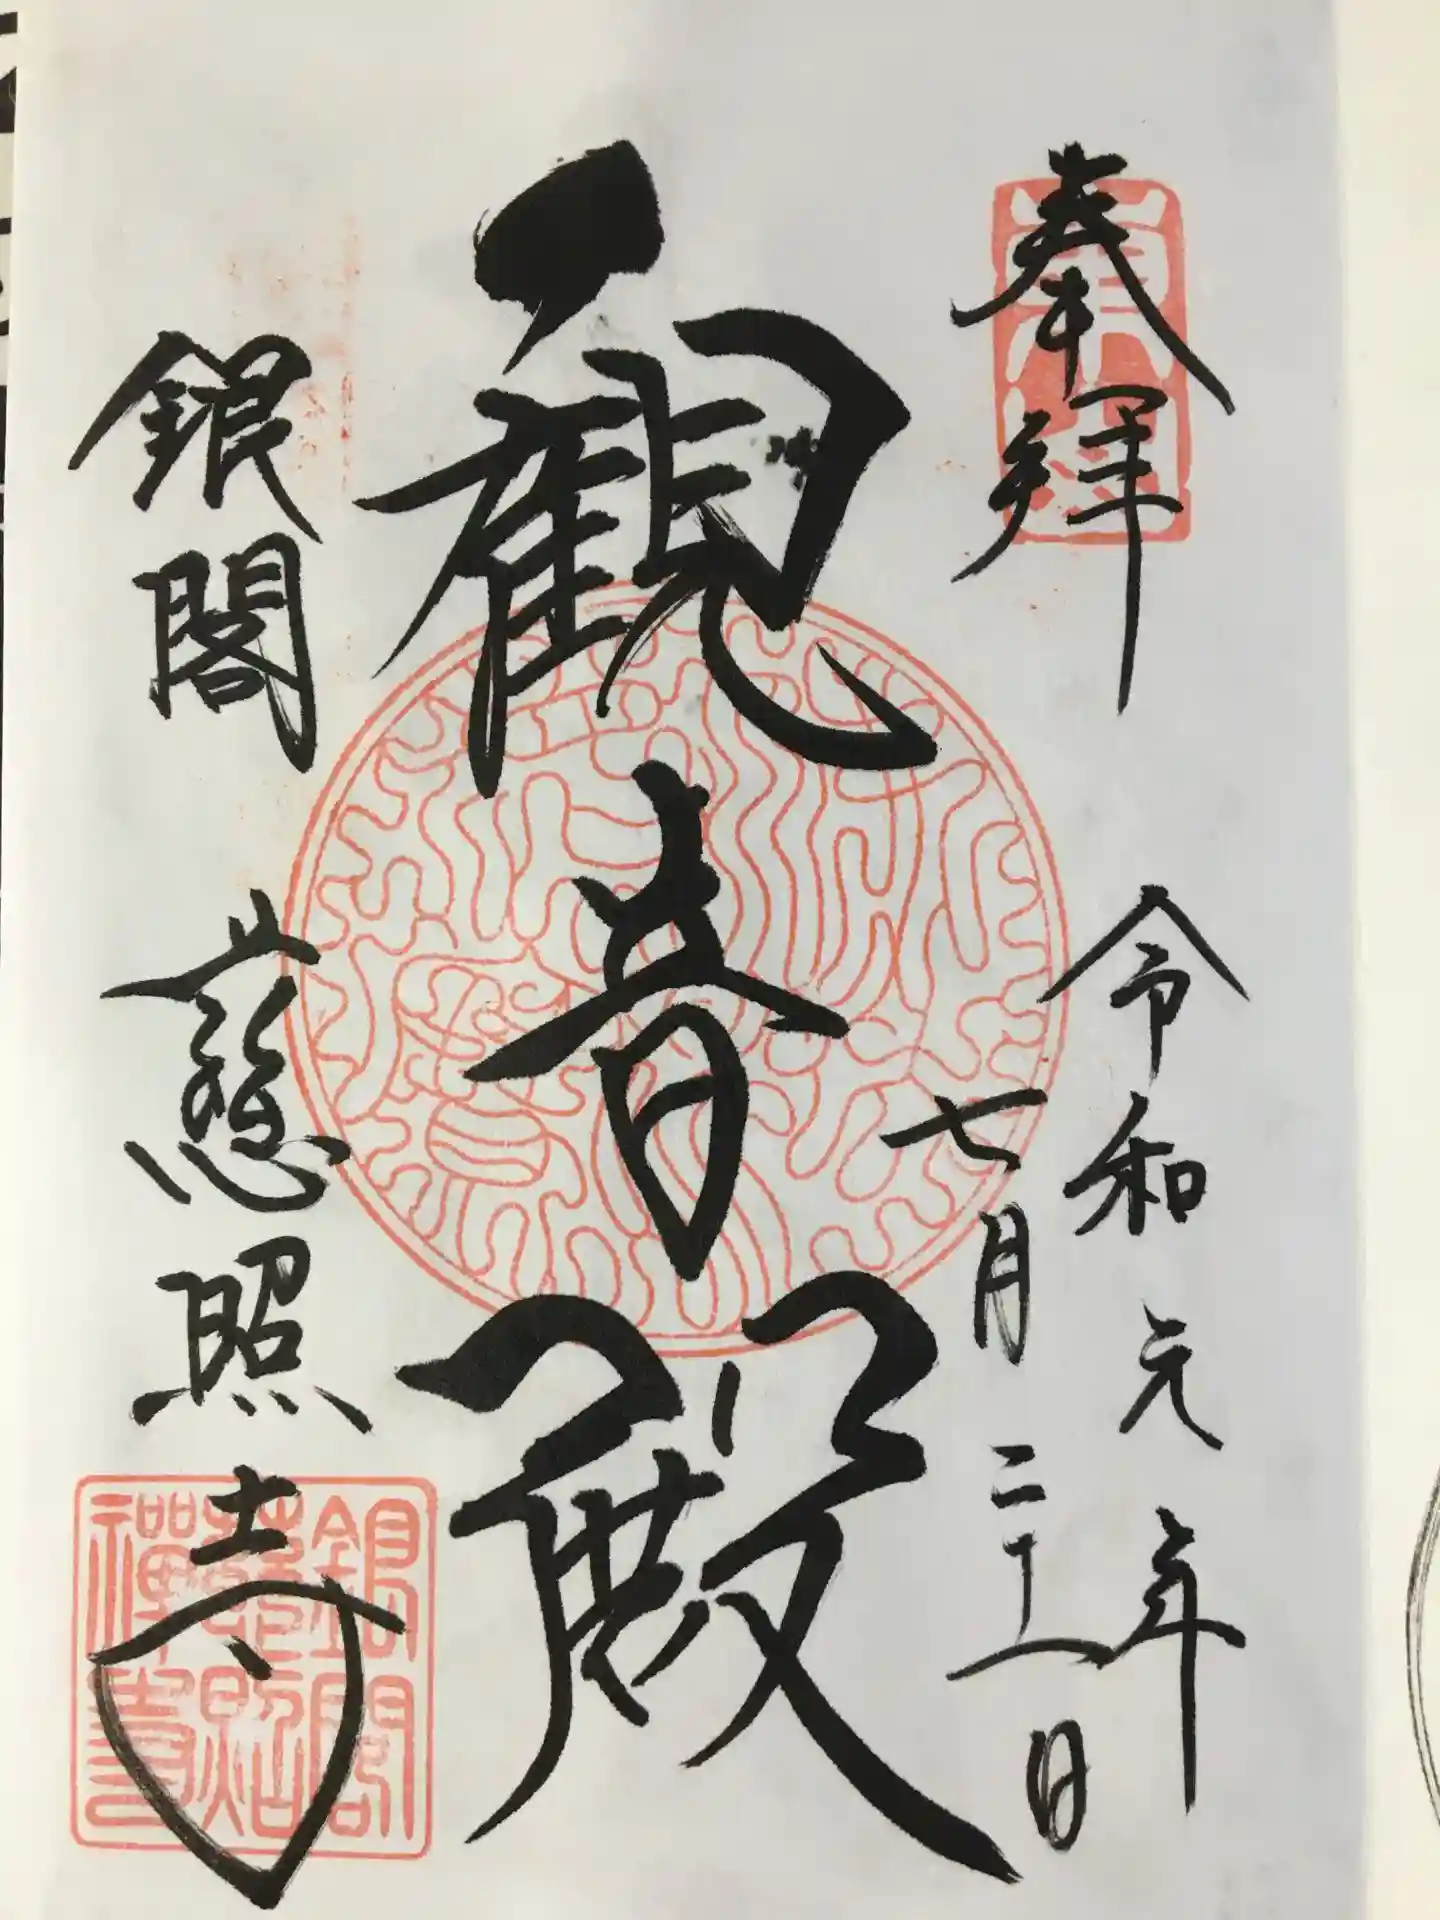 奉拝
令和元年
七月二十一日
観音殿
銀閣 慈照寺
銀閣
慈照
禪寺